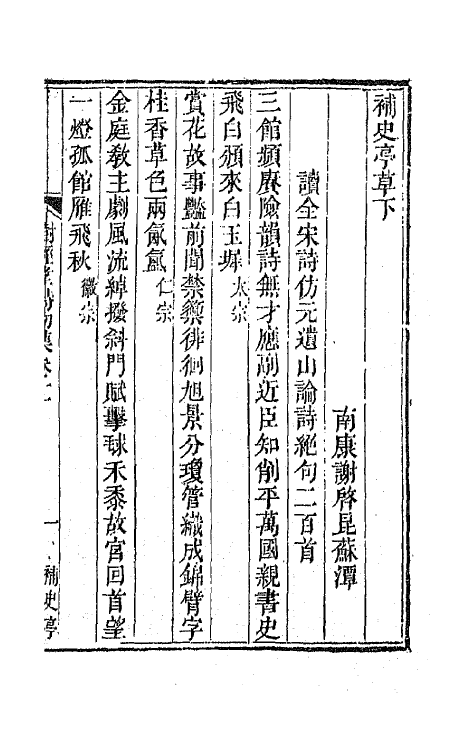 補史亭草下
南康謝啓昆蘇潭
讀全宋詩仿元遺山論詩絕句二百首
三館頻賡險韻詩無才應副近臣知削平萬國親書史
飛白頒來白玉墀太宗
賞花故事豔前聞禁籞徘徊旭景分瓊管織成錦臂字
桂香草色兩氤氳仁宗
金庭敎主劇風流綽撥斜門賦擊毬禾黍故宮回首望
一燈孤館雁飛秋徽宗
樹經堂詩初集卷十一
一
補史亭